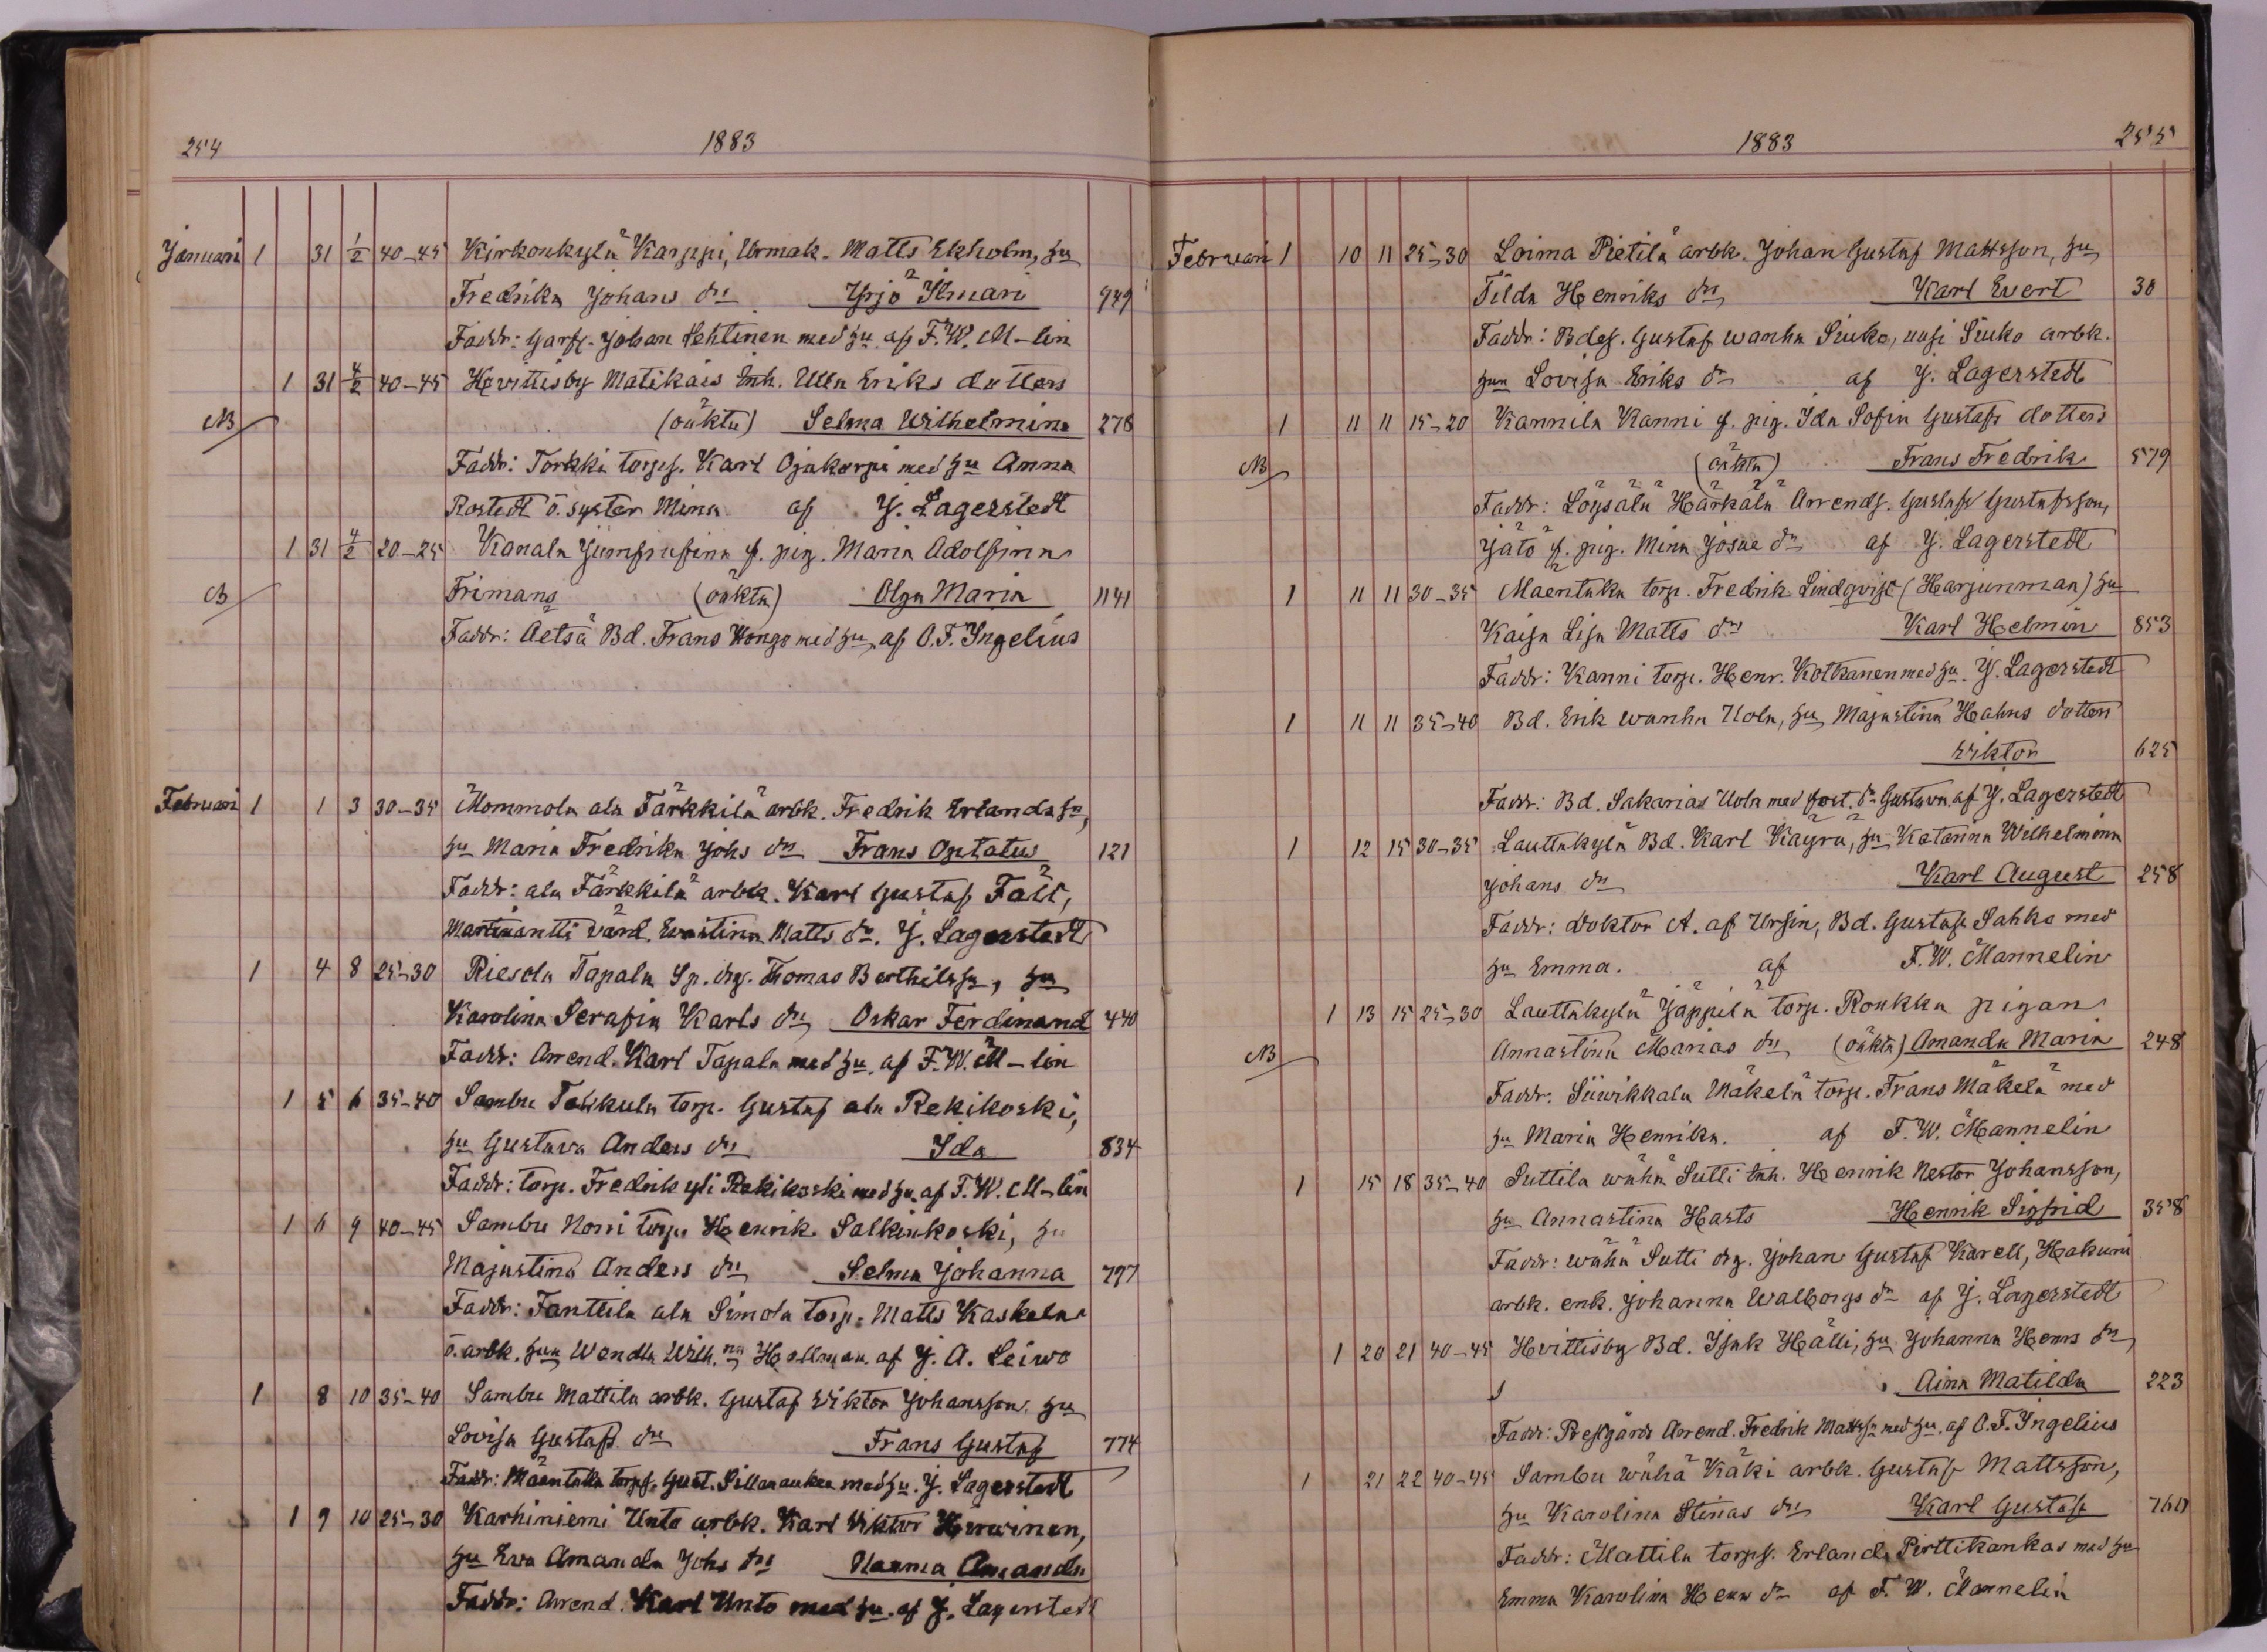 254 1883
Januari 1 31 1/2 40-45 Kirkonkylä Karppi, Urmak. Matts Ekholm, hu
Fredrika Johans dr Yrjö Ilmari 949
Faddr: Garf. Johan Lehtinen med hu af F. W. M-lin
1 31 4/2 40-45 Hvittisby Matikais Inh. Ulla Eriks dotters
NB (oäkta) Selma Wilhelmina 278
Faddr: Torkki torpf. Karl Ojakorpi med hu Anna
Rostedt o. syster Mina af J. Lagerstedt
1 31 4/2 20-25 Kanala Jumfrufina f. pig. Maria Adolfina
NB Frimans (oäkta) Olga Maria 1141
Faddr: Aetsä Bd. Frans Hongo med hu af O. F. Ingelius
Februari 1 1 3 30-35 Mommola ala Färkkilä arbk. Fredrik Erlandsn,
hu Maria Fredrika Johs dr Frans Optatus 121
Faddr: ala Färkkilä arbk. Karl Gustaf Fält,
Martinantti värd. Evastina Matts dr. J. Lagerstedt
1 4 8 25-30 Riesola Tapala Sp. drg. Thomas Berthilsn, hu
Karolina Serafia Karls dr Oskar Ferdinand 440
Faddr: Arrend. Karl Tapala med hu af F. W. M-lin
1 5 6 35-40 Sambu torp. Gustaf ala Rekikoski,
hu Gustava Anders dr Ida 834
Faddr: torp. Fredrik yli Rekikoski med hu af F. W. M-lin
1 6 9 40-45 Sambu Norri torp. Henrik Salkinkoski, hu
Majastina Anders dr Selma Johanna 797
Faddr: Fanttila ala Simola torp. Matts Kaskela
o. arbk. hun Wendla Wilh.na Hallman af J. A. Leiwo
1 8 10 35-40 Sambu Mattila arbk. Gustaf Viktor Johansson, hu
Lovisa Gustafs dr Frans Gustaf 774
Faddr: Mäentaka torpf. Gust. Sillanaukee med hu. J. Lagerstedt
1 9 10 25-30 Karhiniemi Unto arbk. Karl Viktor
hu Eva Amanda Johs dr Nanma Amanda
Faddr: Arrend. Karl Unto med hu af J. Lagerstedt
1883 255
Februari 1 10 11 25-30 Loima Pietilä arbk. Johan Gustaf Mattsson, hu
Tilda Henriks dr Karl Evert 30
Faddr: Bdes. Gustaf wanha Siuko, uusi Siuko arbk.
hun Lovisa Eriks dr af J. Lagerstedt
1 11 11 15-20 Kannila Kanni f. pig. Ida Sofia Gustafs dotters
NB (oäkta) Frans Fredrik 579
Faddr: Löysälä Härkälä Arrends. Gustaf Gustafsson,
Jätö f. pig. Mina Josae dr af J. Lagerstedt
1 11 11 30-35 Maentaka torp. Fredrik Lindqvist (Harjunman) hu
Kaisa Lisa Matts dr Karl Helmin 853
Faddr: Kanni torp. Henr. Kotkanen med hu. J. Lagerstedt
1 11 11 35-40 Bd. Erik wanha Uola, hu Majastina Hahns dotter
Viktor 625
Faddr: Bd. Sakarias Uola med fost. dr Gustava af J. Lagerstedt
1 12 15 30-35 Lauttakylä Bd. Karl Käyrä, hu Katarina Wilhelmina
Johans dr Karl August 258
Faddr: Doktor A. af Ursin, Bd. Gustaf Sahko med
hu Emma. af F. W. Mannelin
1 13 15 25-30 Lauttakylä Jäppilä torp. Ronkka pigan
NB Annastina Marias dr (oäkta) Amanda Maria 248
Faddr: Siiwikkala Mäkelä torp. Frans Mäkelä med
hu Maria Henrika. af F. W. Mannelin
1 15 18 35-40 Suttila wähä Sutti Inh. Henrik Nestor Johansson,
hu Annastina Harts Henrik Sigfrid 358
Faddr: wähä Sutti drg. Johan Gustaf Karell, Hakuni
arbk. enk. Johanna Walborgs dr af J. Lagerstedt
1 20 21 40-45 Hvittisby Bd. Isak Hälli, hu Johanna Henrs dr
Aina Matilda 223
Faddr: Prestgårds Arrend. Fredrik Mattsn med hu af O. F. Ingelius
1 21 22 40-45 Sambu wähä Käki arbk. Gustaf Mattsson,
hu Karolina Stinas dr Karl Gustaf 760
Faddr: Mattila torpf. Erland Pirttikankas med hu
Emma Karolina Henr dr af F. W. Mannelin